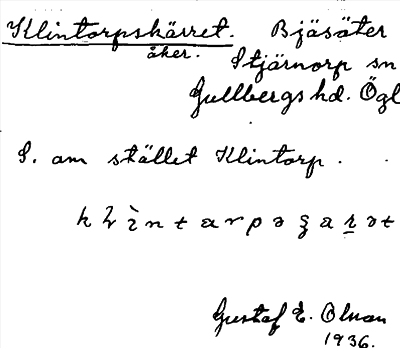 Klintorpskärret. Bjäsäter
åker. Stjärnorp sn
Gullbergs hd. Ögl
S. om stället Klintorp.
Gustaf E. Olman
1936.